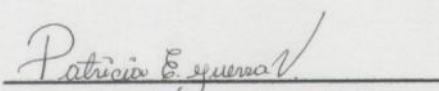 Patricia E. Guerra V.